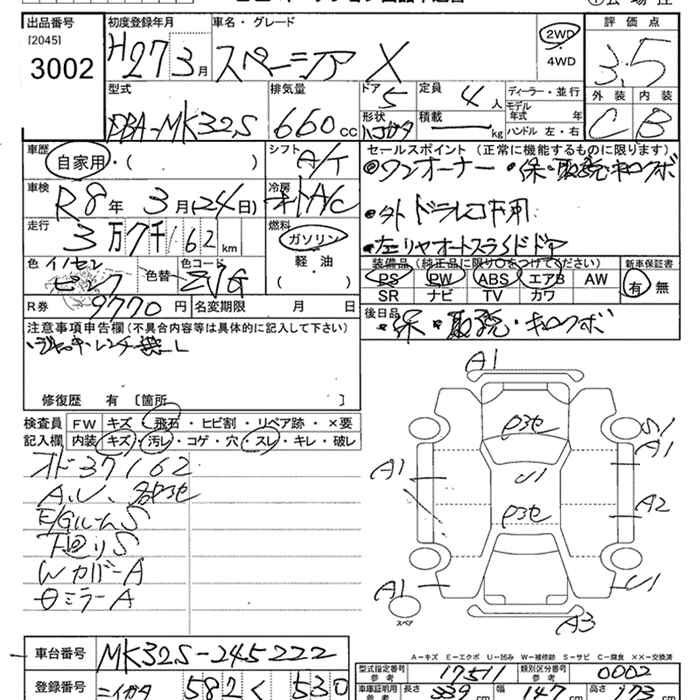 出品番号 初度登録年月 車名・グレード 評価点
[2045]
3002 H27 3月 スペーシア X 2WD 3.5
4WD
型式 排気量 ドア 定員 ディーラー・並行 外装 内装
DBA-MK32S 660cc 5 4人 モデル年式 年式 C B
形状 積載 kg ハンドル 左・右
車歴 シフト セールスポイント (正常に機能するものに限ります)
自家用・( ) A/T ◎ワンオーナー ・保・取説・キーロクボ
車検 冷房
R8年 3月(24日) オートA/C ・社外ドラレコ
走行 燃料 ・左リヤオートスライドドア
3万7千162km ガソリン
軽・油
( )
色 イノセンピンク 色替 色コード ZVG
装備品 (純正品に限り○をつけてください) 新車保証書
PS PW ABS エアB AW 有 無
SR ナビ TV カワ
R券 9770円 名変期限 月 日
後日品 ・保・取説・キーロクボ
注意事項申告欄(不具合内容等は具体的に記入して下さい)
・ジャッキ・レンチ無し
修復歴 有 [箇所 ]
検査員記入欄 FW キズ・飛石・ヒビ割・リペア跡・×要
内装 キズ・汚レ・コゲ・穴・スレ・キレ・破レ
オド37162
A.U、
E/GルームS
下回りS
WカバーA
ミラーA
A1
S1
A1
A1
U1
A2
A1
U1
A3
スペア
A−キズ E−エクボ U−凹み W−補修跡 S−サビ C−腐食 XX−交換済
車台番号 MK32S-245222
型式指定番号 参考 17511 類別区分番号 参考 0002
登録番号 ニイガタ 582 く 530
車庫証明用 参考 長さ 339cm 幅 147cm 高さ 173cm